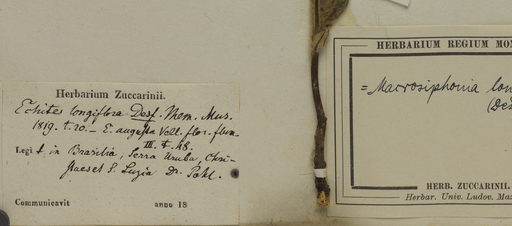 Herbarium Zuccarinii.
Echites longiflora Desf. Mem. Mus.
1819. t. 20. – E. augusta Vell. flor. flum.
III. t. 48.
Legi t. in Brasilia, Serra
S. Luzia Dr. Pohl.
Communicavit anno 18
HERBARIUM REGIUM MON
= Macrosiphonia lon
(Des
HERB. ZUCCARINII.
Herbar. Univ. Ludov. Max